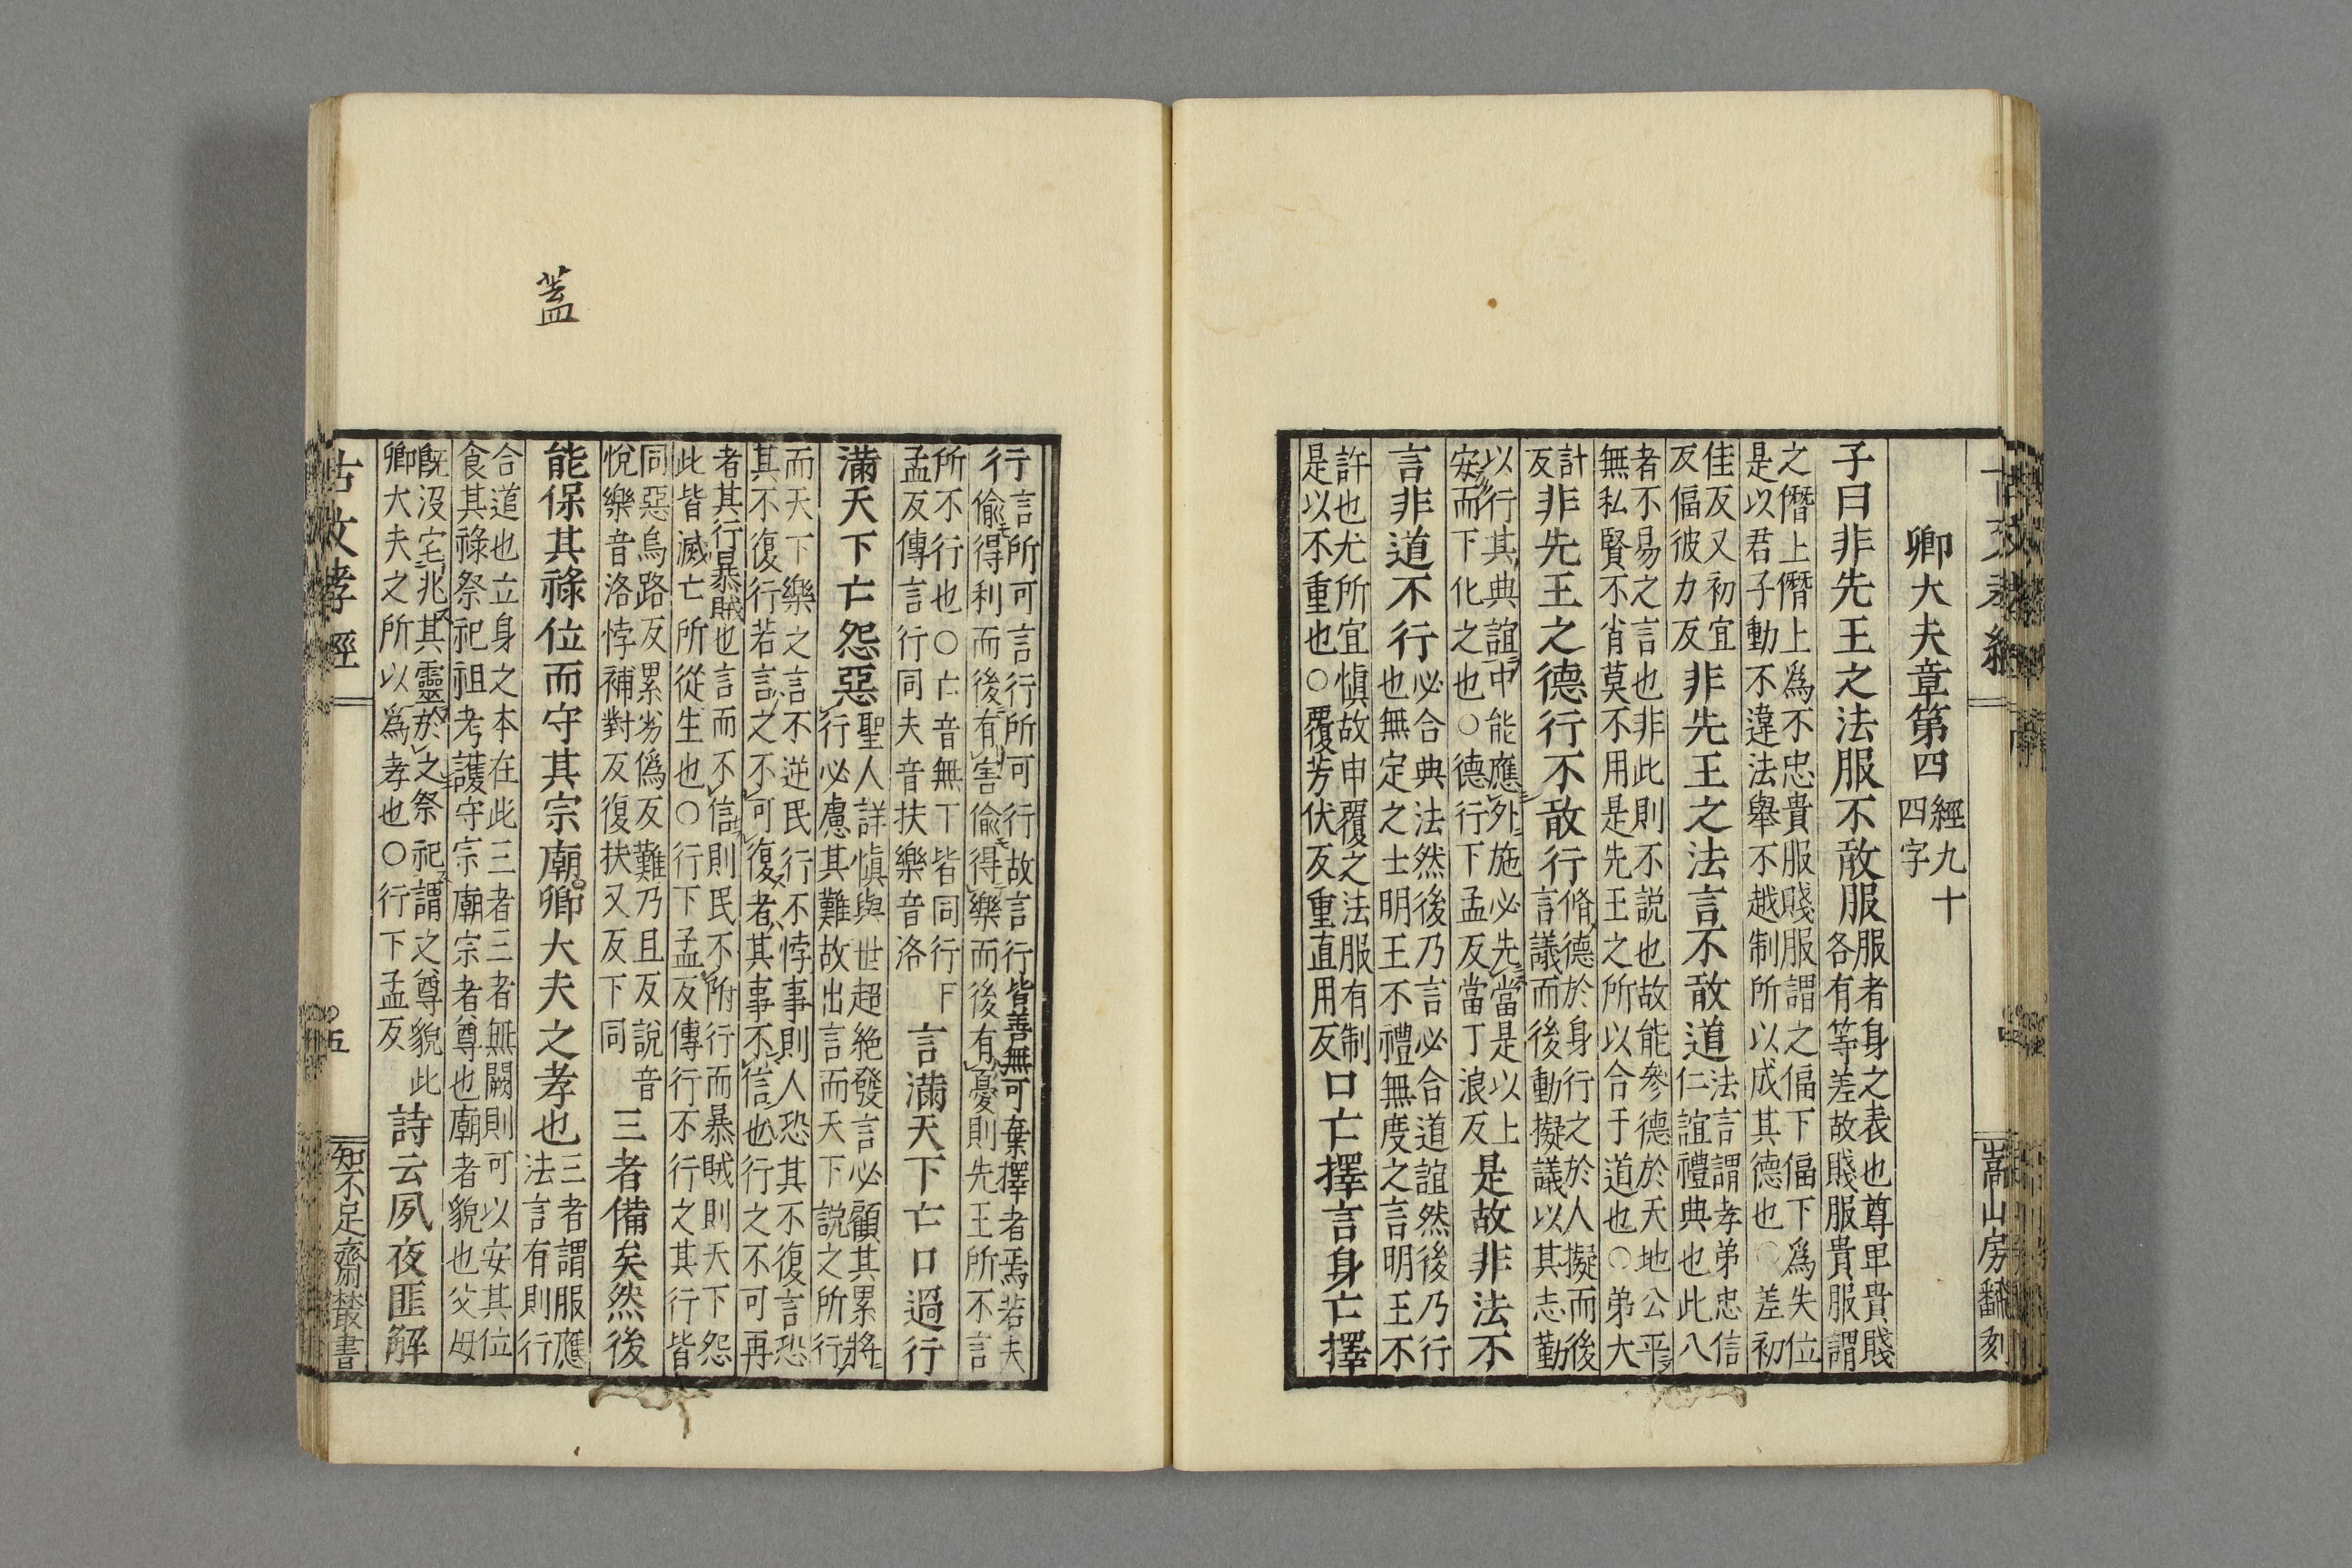 卿大夫章第四 經九十四字
子曰非先王之法服不敢服 服者身之表也尊卑貴賤各有等差故賤服貴服謂
之僭上僭上爲不忠貴服賤服謂之偪下偪下爲失位是以君子動不違法舉不越制所以成其德也○差初
佳反又初宜反偪彼力反 非先王之法言不敢道 法言謂孝弟忠信仁誼禮典也此八
者不易之言也非此則不説也故能參德於天地公平無私賢不肖莫不用是先王之所以合于道也○弟大
計反 非先王之德行不敢行 脩德於身行之於人擬而後言議而後動擬議以其志動
以行其典誼中能應外施必先當是以上安而下化之也○德行下孟反當丁浪反 是故非法不
言非道不行 必合典法然後乃言必合道誼然後乃行也無定之士明王不禮無度之言明王不
許也尤所宜愼故申覆之法服有制是以不重也○覆芳伏反重直用反 口亡擇言身亡擇
行 言所可言行所可行故言行皆善無可棄擇者焉若夫偷得利而後有害偷得樂而後有憂則先王所不言
所不行也○亡音無下皆同行下孟反傳言行同夫音扶樂音洛 言滿天下亡口過行
滿天下亡怨惡 聖人詳愼與世超絶發言必顧其累將行必慮其難故出言而天下説之所行
而天下樂之言不逆民行不悖事則人恐其不復言恐其不復行若言之不可復者其事不信也行之不可再
者其行暴賊也言而不信則民不附行而暴賊則天下怨此皆滅亡所從生也○行下孟反傳行不行之其行皆
同惡烏路反累劣僞反難乃且反説音悅樂音洛悖補對反復扶又反下同 三者備矣然後
能保其祿位而守其宗廟卿大夫之孝也 三者謂服應法言有則行
合道也立身之本在此三者三者無闕則可以安其位食其祿祭祀祖考護守宗廟宗者尊也廟者貌也父母
旣沒宅兆其靈於之祭祀謂之尊貌此卿大夫之所以爲孝也○行下孟反 詩云夙夜匪解
古文孝經
五
知不足齋叢書
嵩山房翻刻
蓋